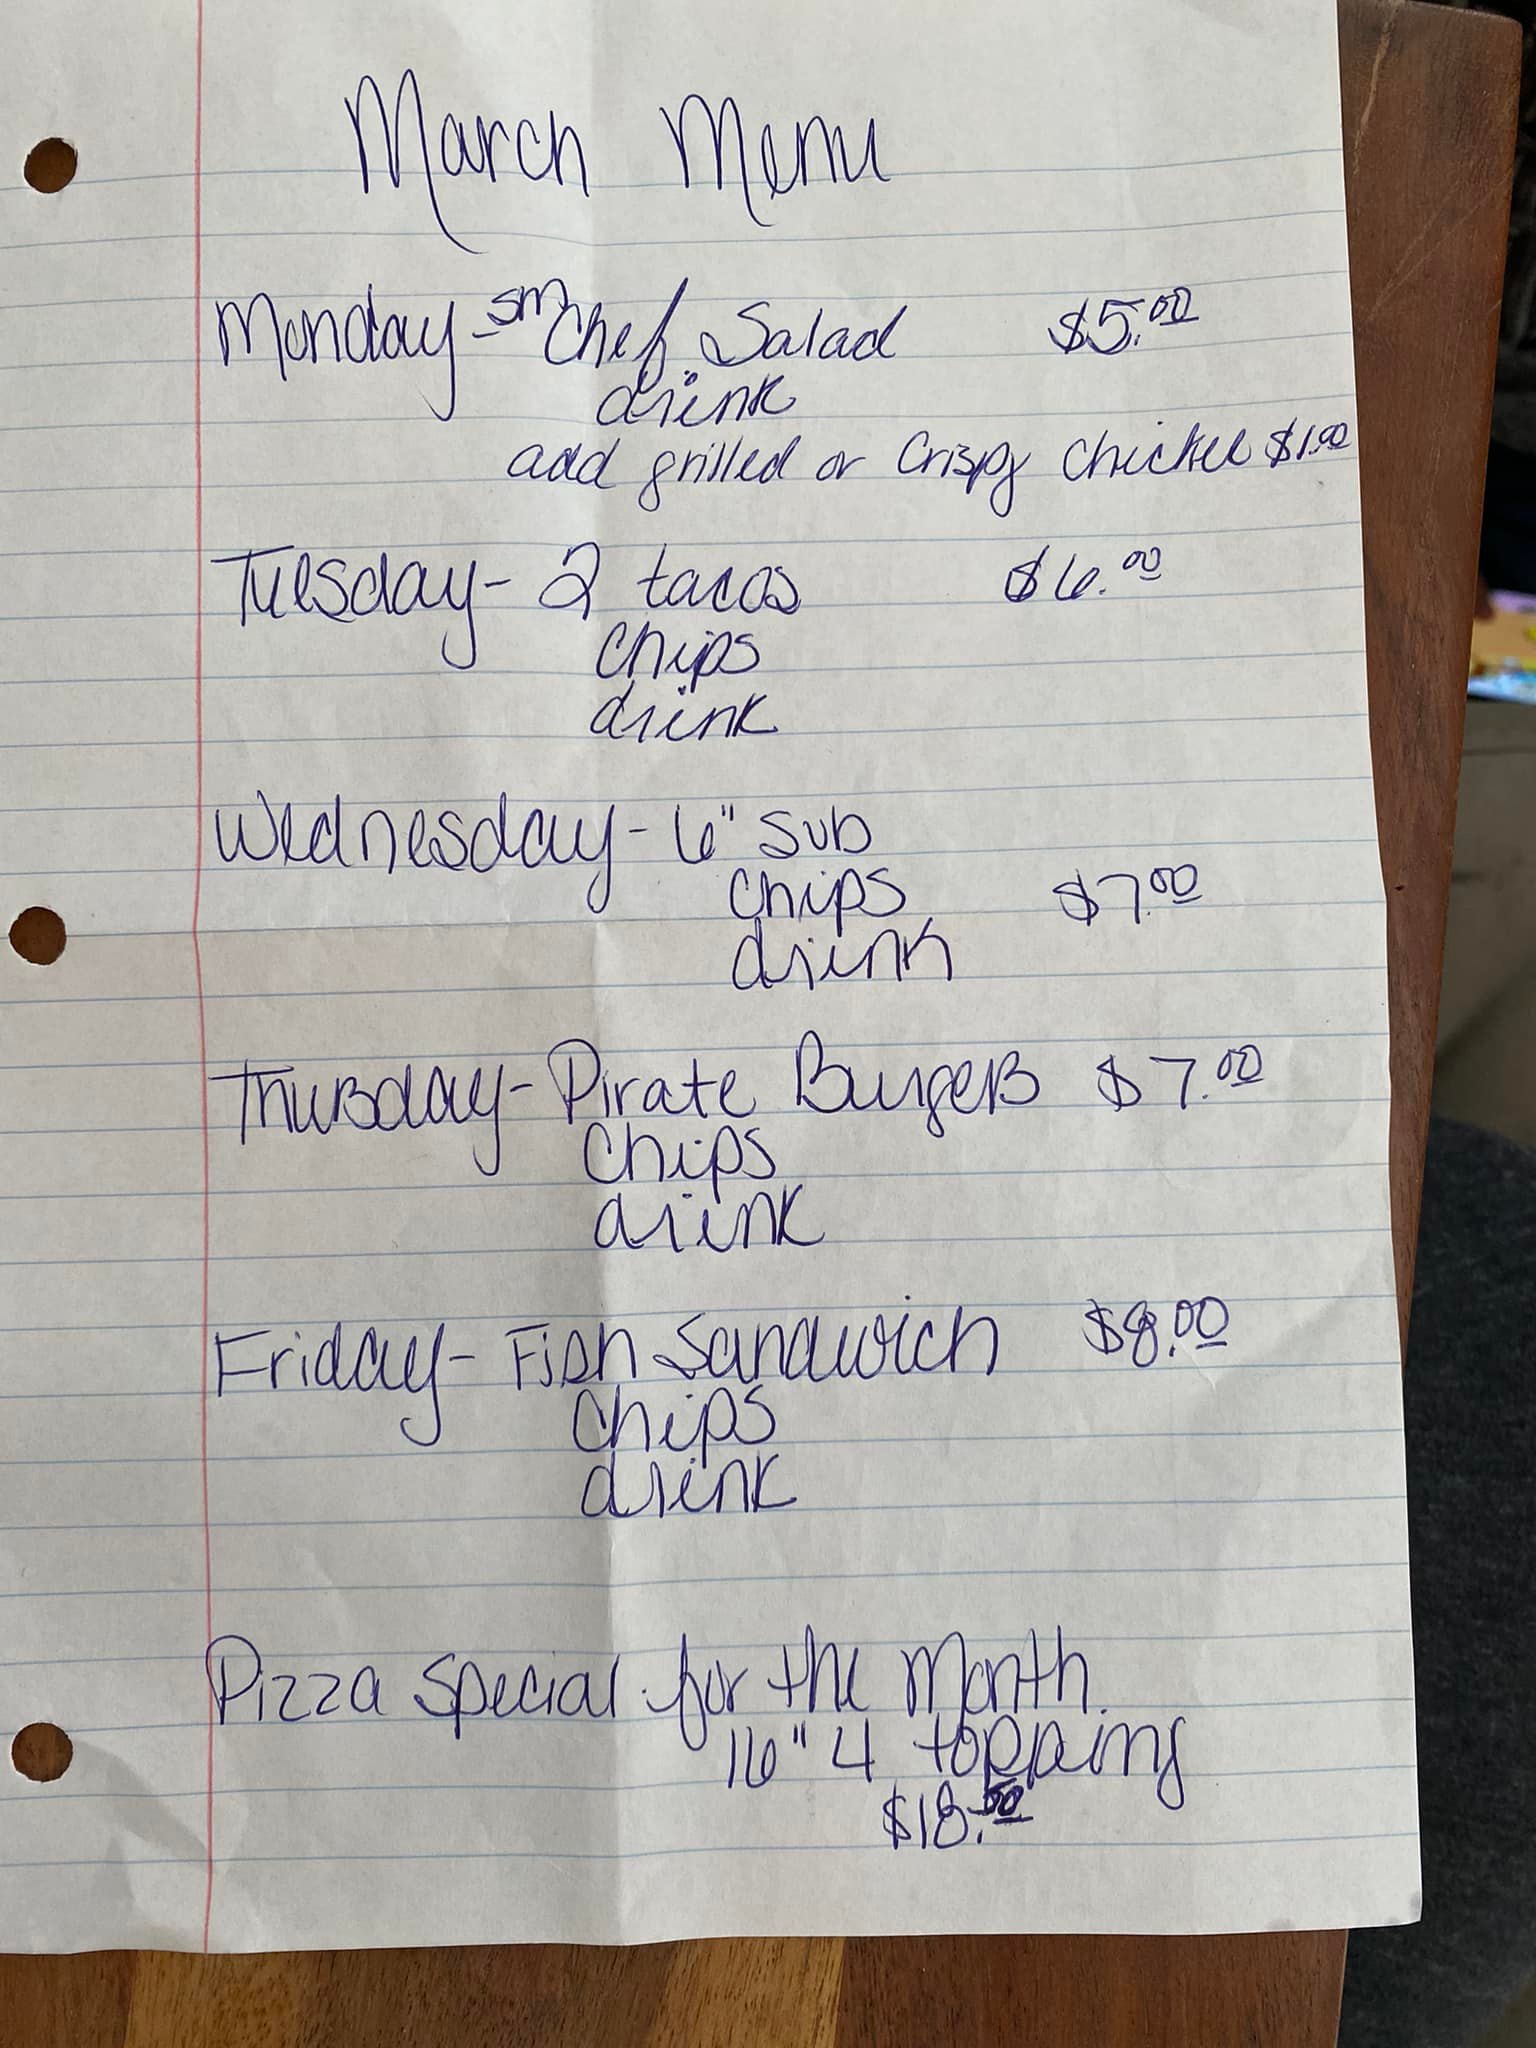 March Menu
Monday - sm Chef Salad $5.00
drink
add grilled or Crispy Chicken $1.00
Tuesday - 2 tacos $6.00
Chips
drink
Wednesday - 6" sub
chips $7.00
drink
Thursday - Pirate Burgers $7.00
Chips
drink
Friday - Fish Sandwich $8.00
Chips
drink
Pizza Special for the Month
16" 4 topping
$18.50